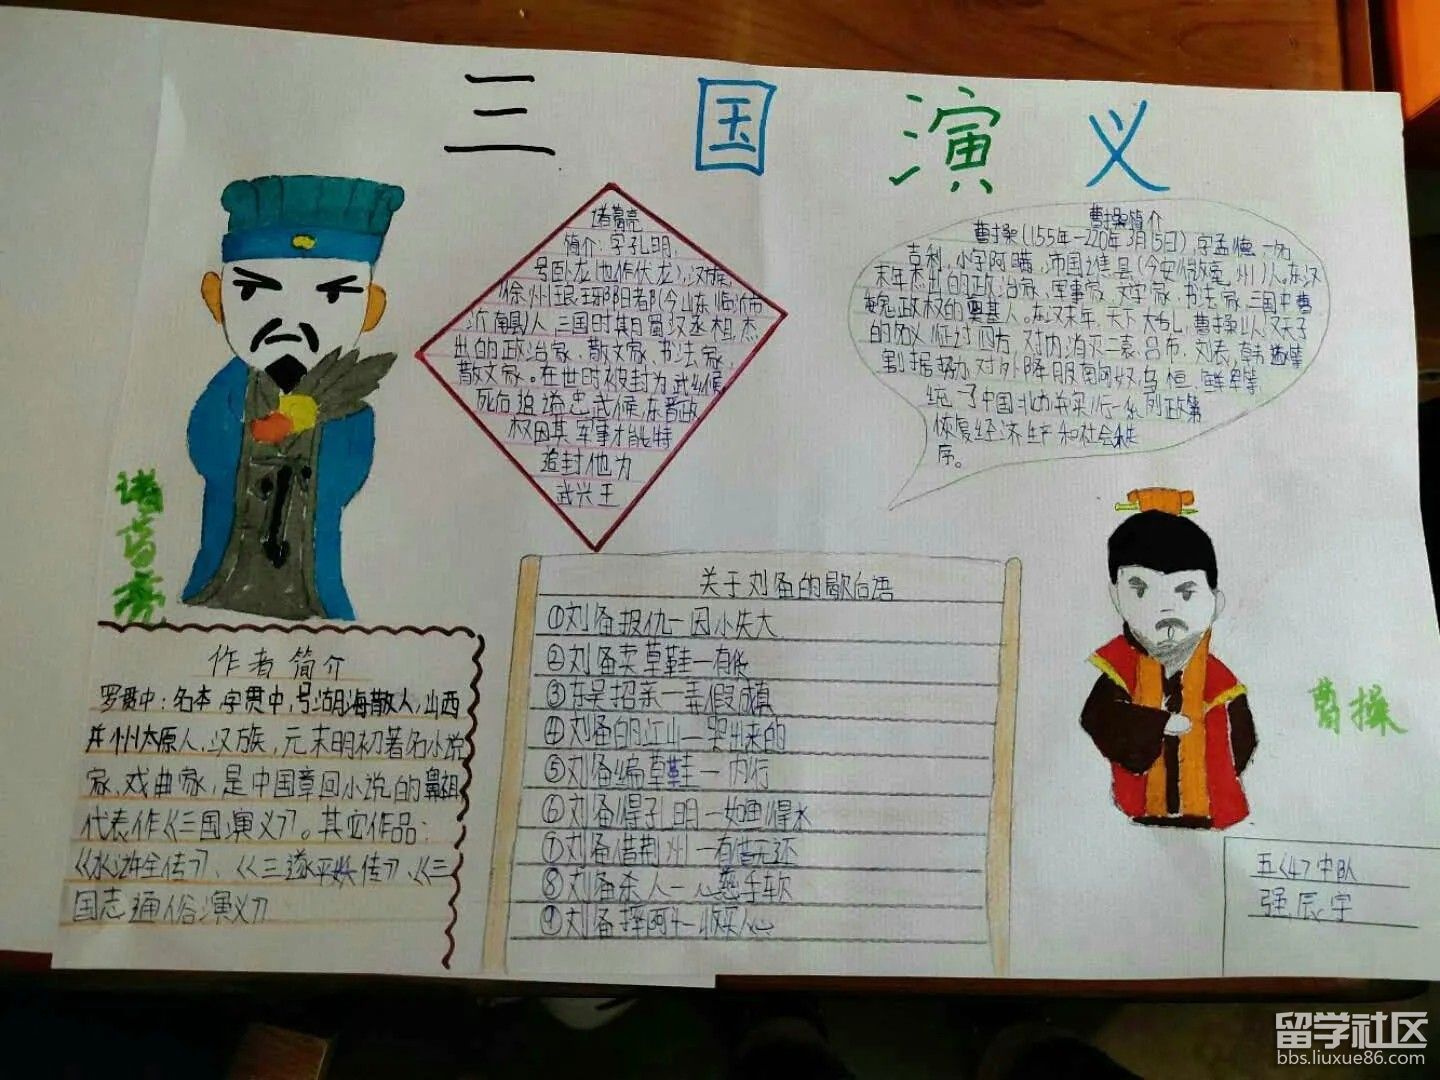 三国演义
诸葛亮
简介:字孔明,
号卧龙(也作伏龙),汉族,
徐州琅琊阳都(今山东临沂市
沂南县)人,三国时期蜀汉丞相,杰
出的政治家、散文家、书法家、
散文家。在世时被封为武乡候,
死后追谥忠武候,东晋政
权因其军事才能特
追封他为
武兴王
曹操简介
曹操(155年—220年3月15日)字孟德,一为
吉利,小字阿瞒,沛国谯县(今安徽亳州)人。东汉
末年杰出的政治家、军事家、文学家、书法家,三国中曹
魏政权的奠基人。东汉末年,天下大乱,曹操以汉天子
的名义征讨四方,对内消灭二袁、吕布、刘表、韩遂等
割据势力,对外降服南匈奴、乌桓、鲜卑等
统一了中国北方并实行一系列政策
恢复经济生产和社会秩
序。
诸葛亮
作者简介
罗贯中:名本,字贯中,号湖海散人,山西
并州太原人,汉族,元末明初著名小说
家、戏曲家,是中国章回小说的鼻祖
代表作《三国演义》。其它作品:
《水浒全传》、《三遂平妖传》、《三
国志通俗演义》
关于刘备的歇后语
①刘备报仇—因小失大
②刘备卖草鞋—有
③东吴招亲—弄假成真
④刘备的江山—哭出来的
⑤刘备编草鞋—内行
⑥刘备得孔明—如鱼得水
⑦刘备借荆州—有借无还
⑧刘备杀人—心慈手软
⑨刘备摔阿斗—收买人心
曹操
五〈4〉中队
强辰宇
留学社区
bbs.liuxue86.com